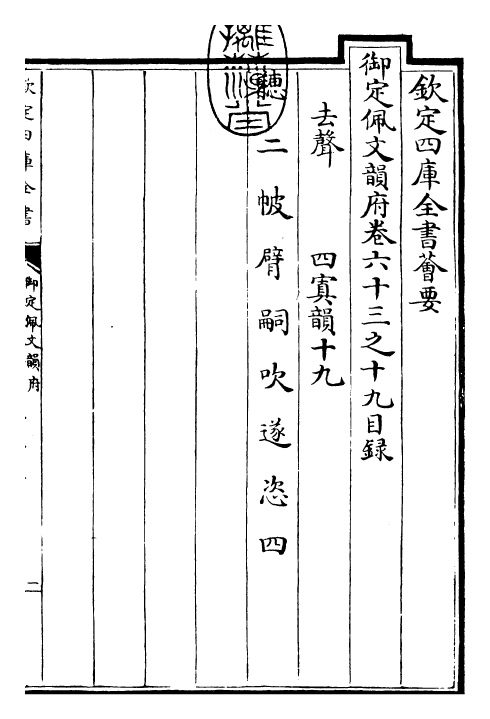 欽定四庫全書薈要
御定佩文韻府卷六十三之十九目録
去聲　四寘韻十九
二帔臂嗣吹遂恣四
欽定四庫全書
御定佩文韻府
二